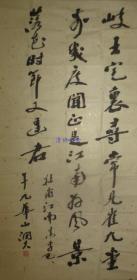 岐王宅裏尋常見崔九堂
前幾度聞正是江南好風景
落花時節又逢君 杜甫江南逢李龜
年 九華山